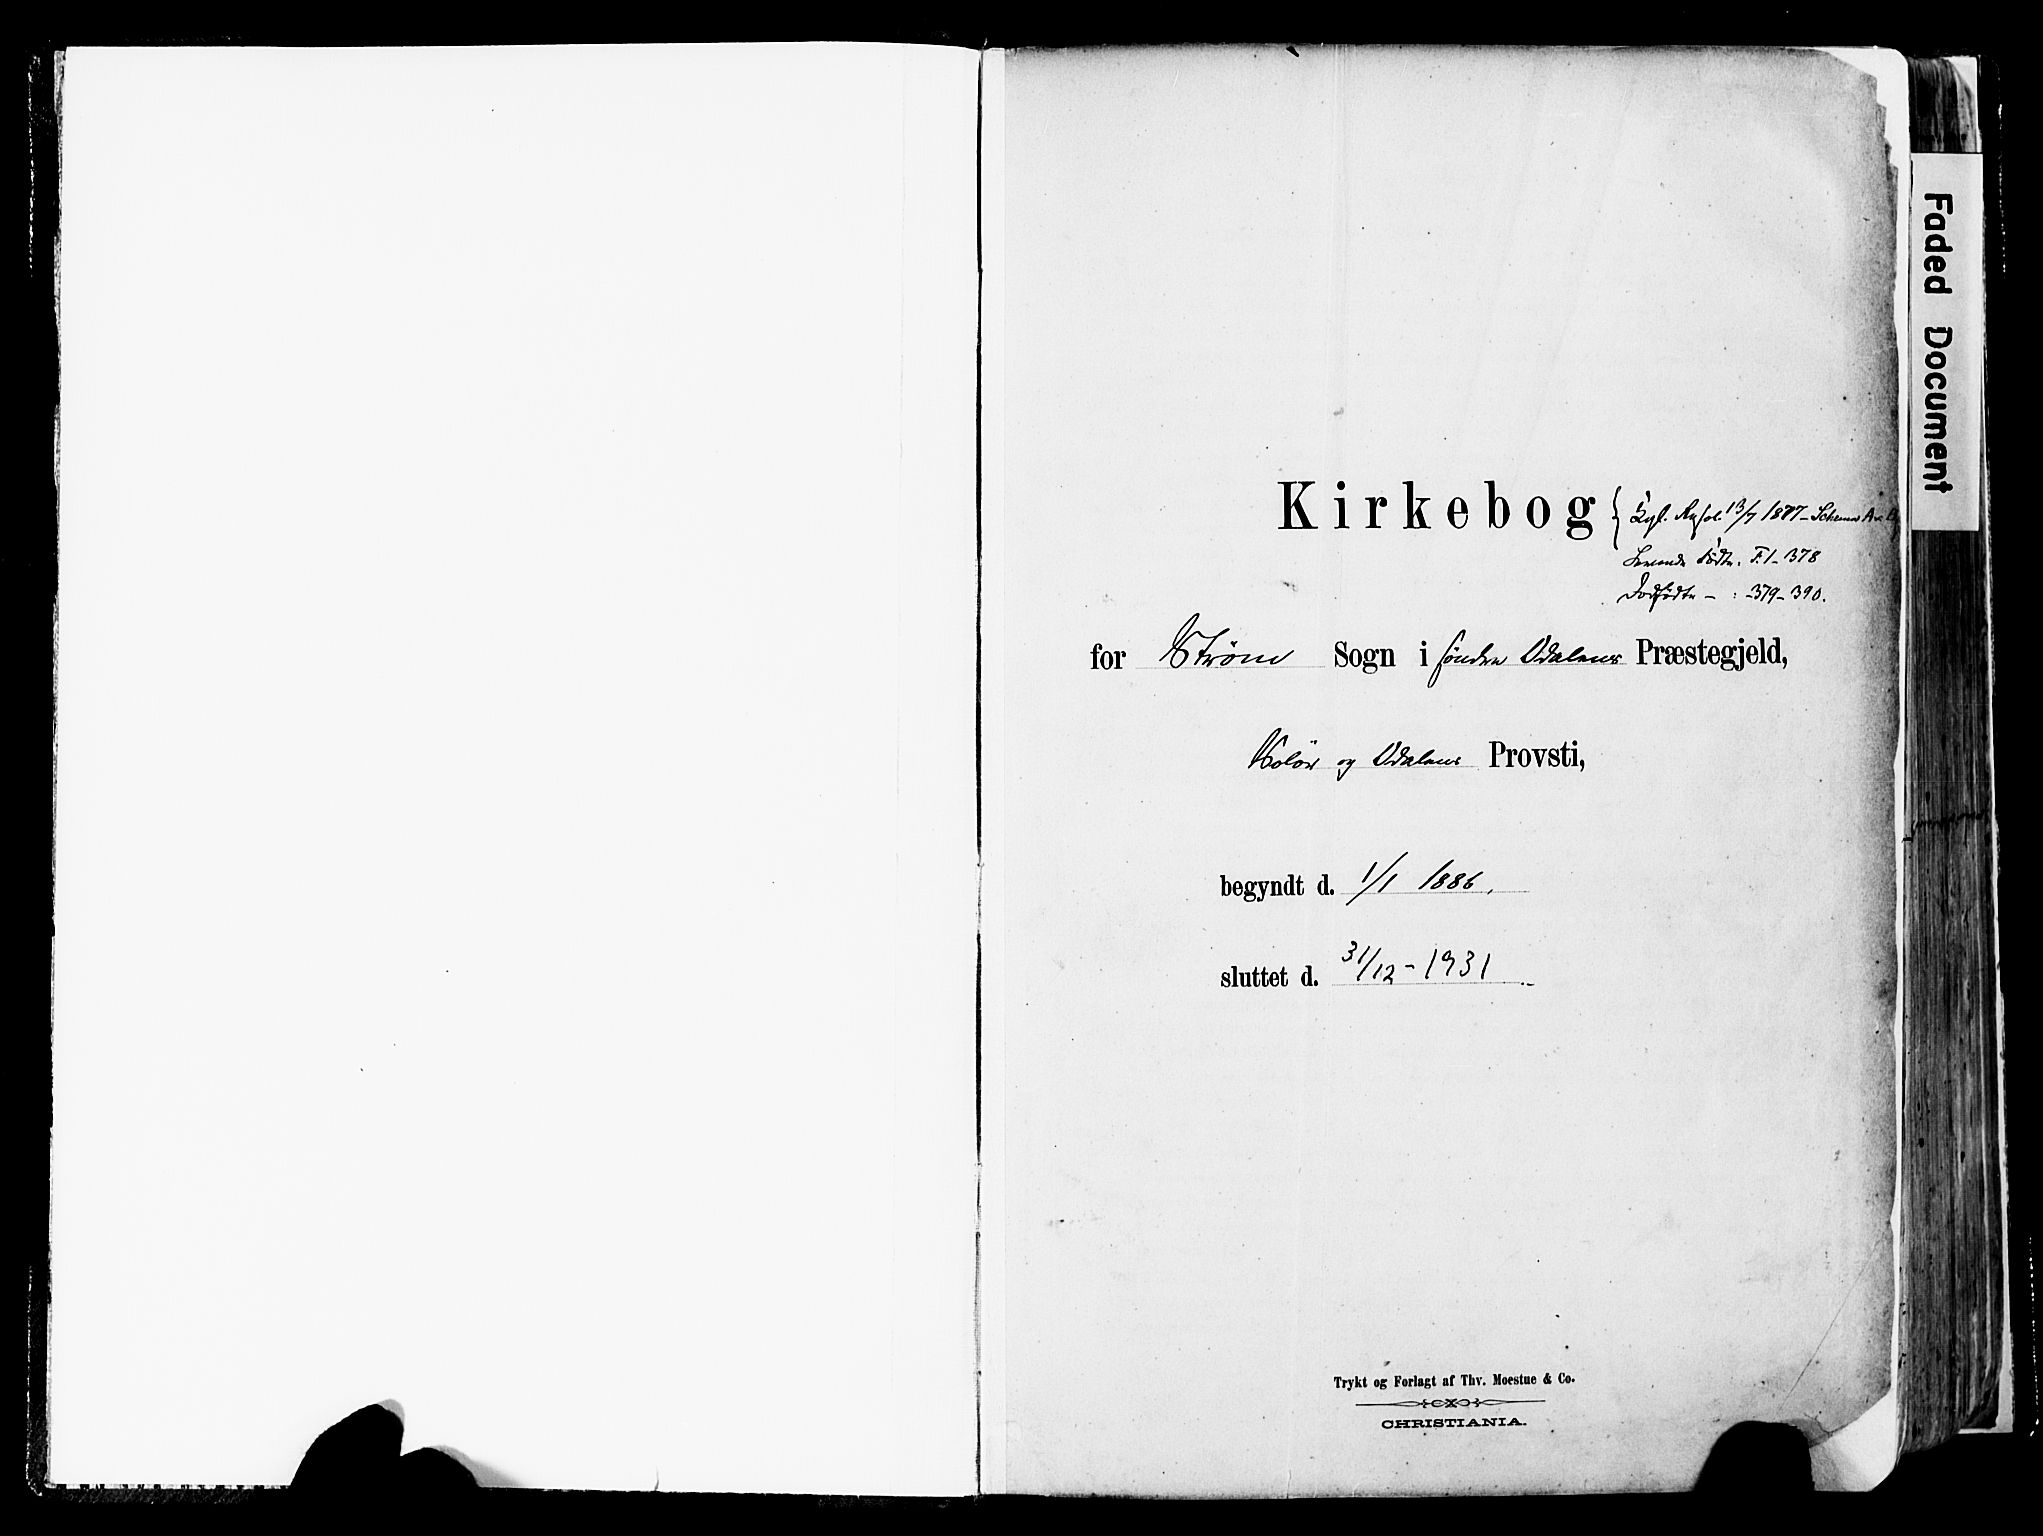 Kirkebog
Kgl. Resol. 13/7 1877 - Schema A
Levende Fødte: F. 1 - 378
Dødfødte - : - 379 - 390.
for Strøm Sogn i søndre Odalens Præstegjeld,
Solør og Odalens Provsti,
begyndt d. 1/1 1886.
sluttet d. 31/12 - 1931
Trykt og Forlagt af Thv. Moestue & Co.
CHRISTIANIA.
Faded Document